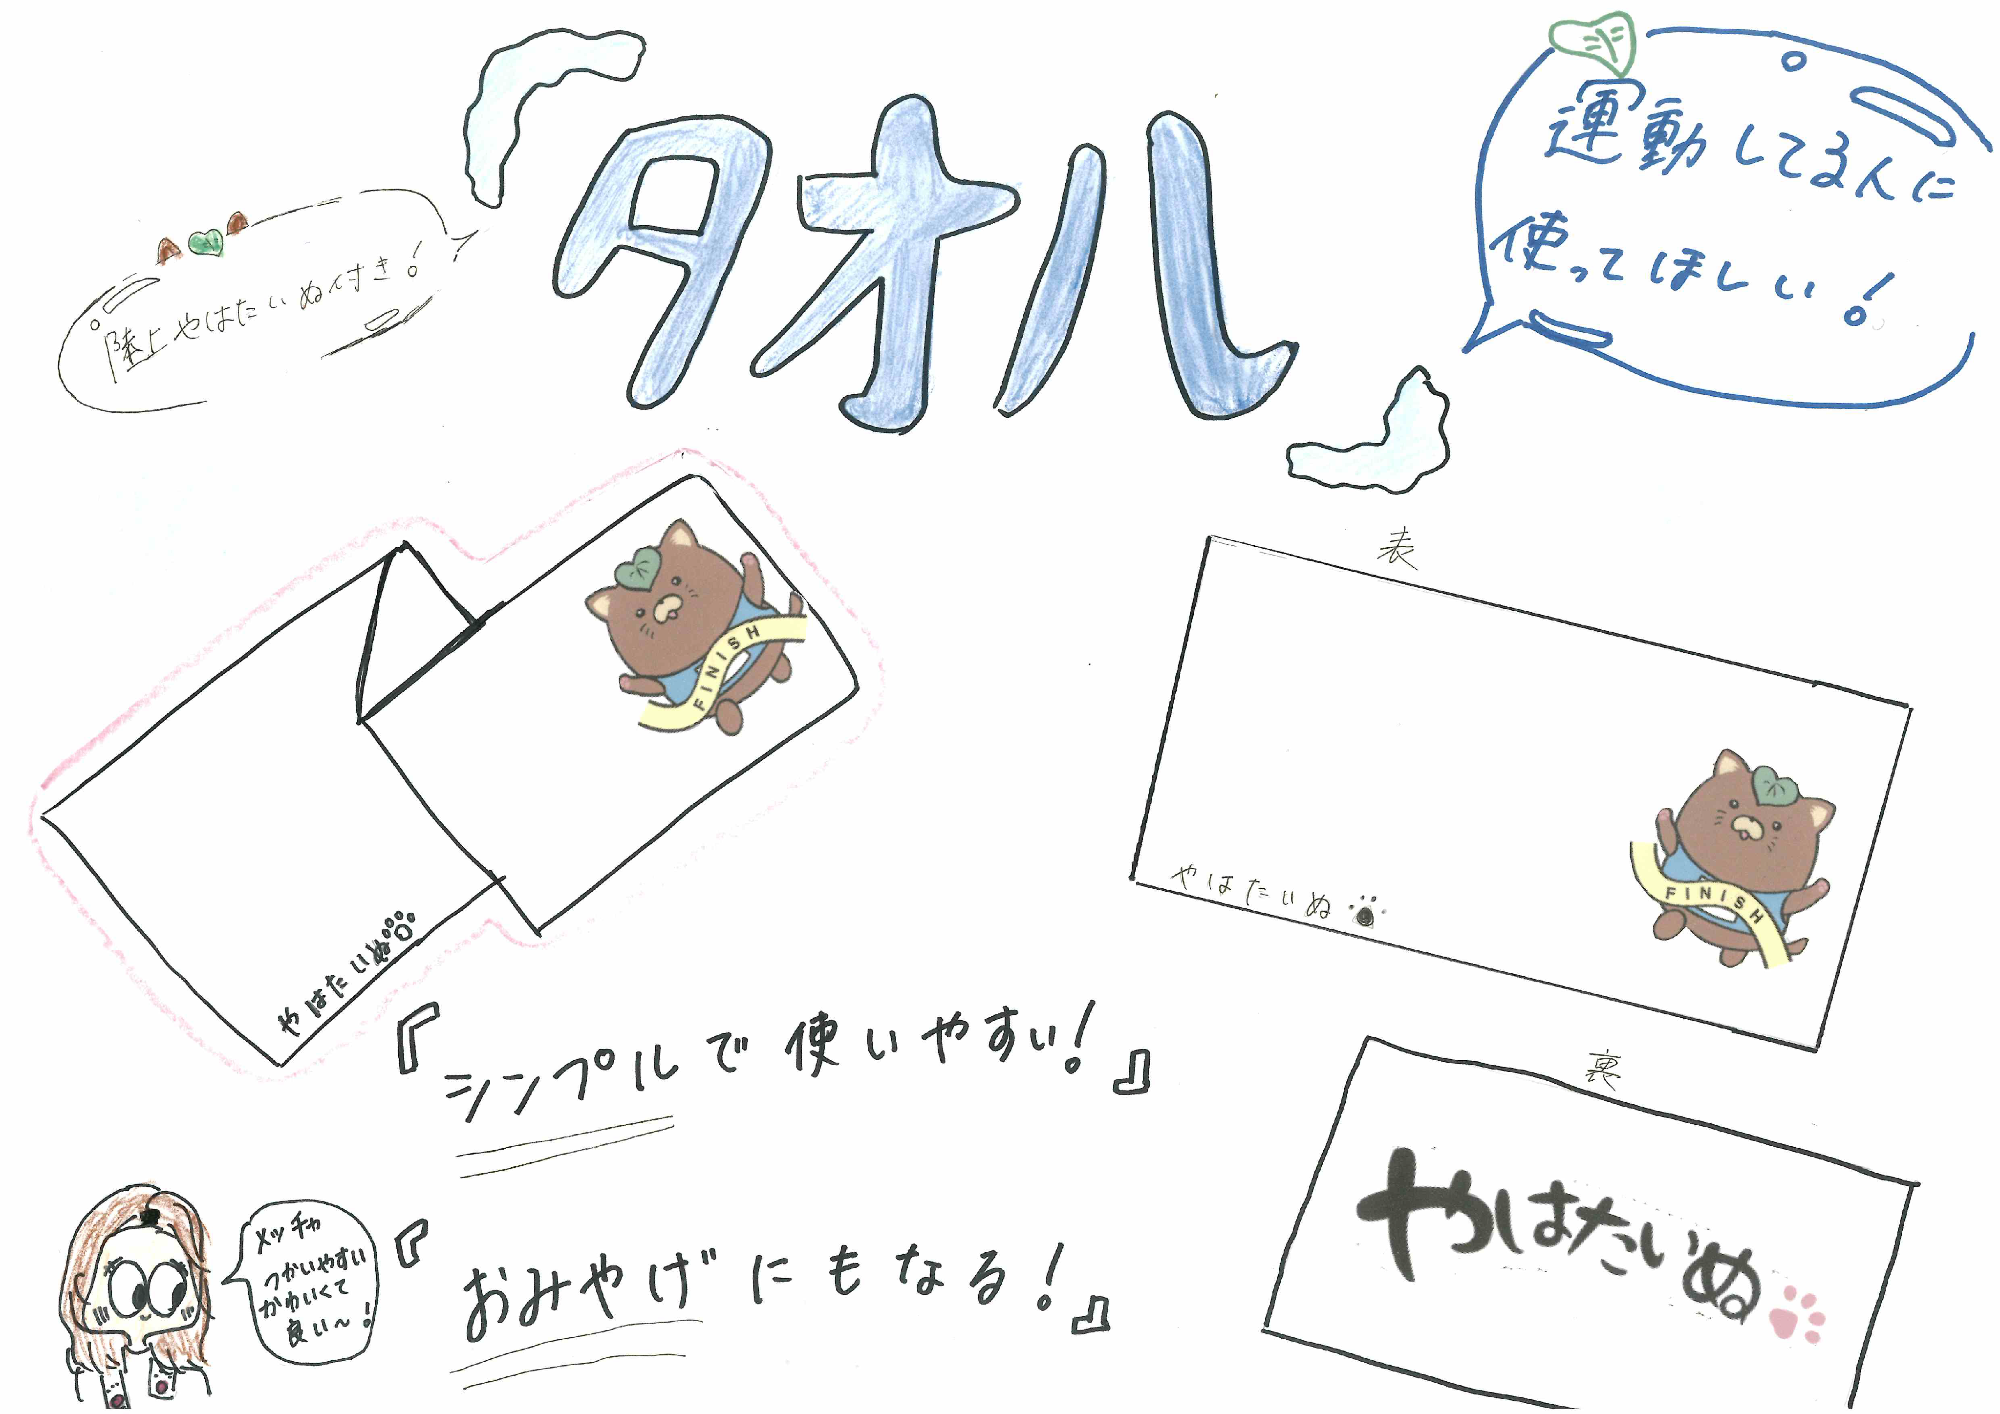 『タオル』
運動してる人に
使ってほしい！
陸上やはたいぬ付き！
FINISH
やはたいぬ
表
FINISH
やはたいぬ
『シンプルで使いやすい！』
裏
やはたいぬ
『おみやげにもなる！』
メッチャ
つかいやすい
かわいくて
良い〜！